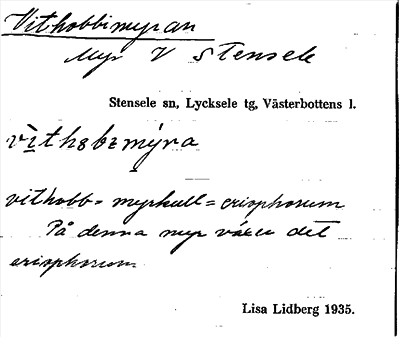 Vithobbimyran
Myr V Stensele
Stensele sn, Lycksele tg, Västerbottens l.
vithobb = myrkull = eriophorum
På denna myr växer det
eriophorum
Lisa Lidberg 1935.